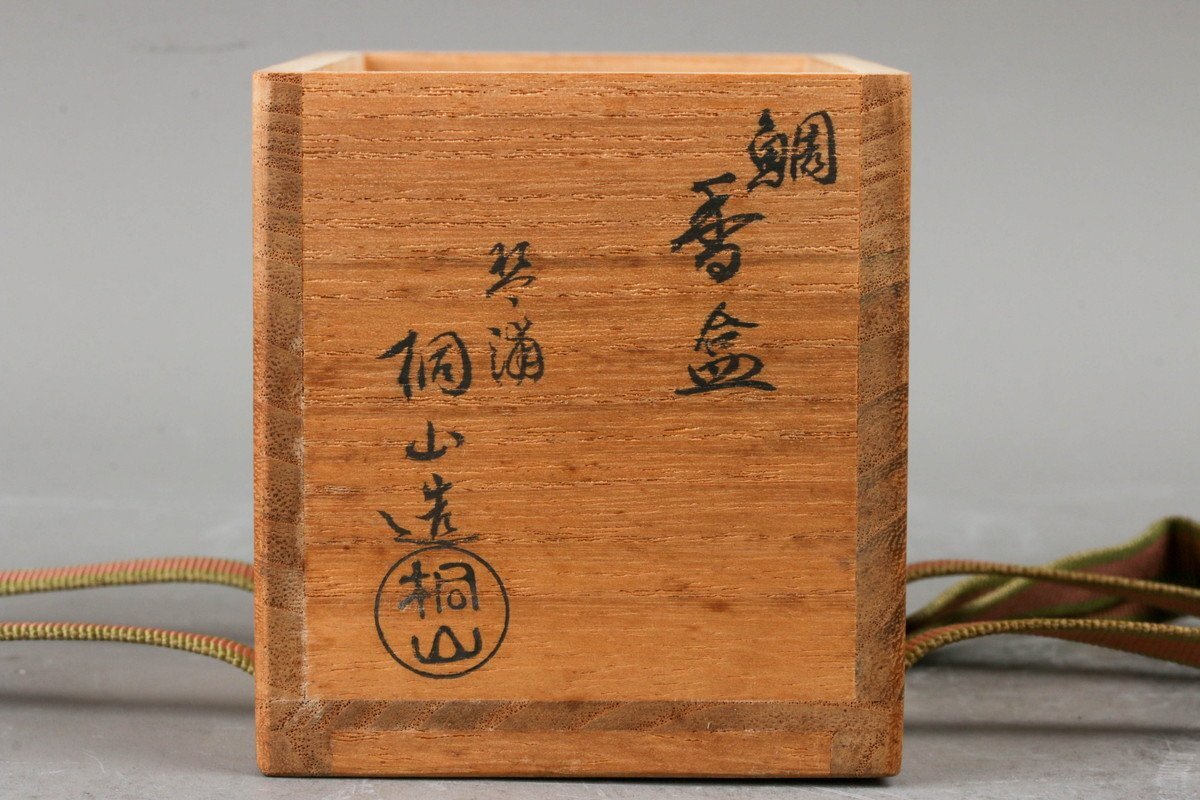 鯛
香盒
琴浦
桐山造
桐山